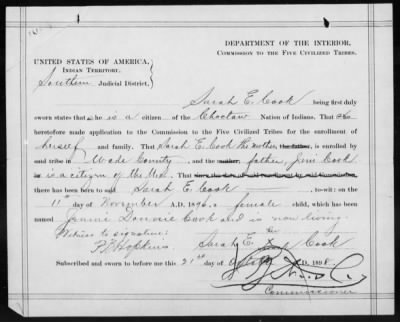 DEPARTMENT OF THE INTERIOR,
COMMISSION TO THE FIVE CIVILIZED TRIBES.
UNITED STATES OF AMERICA,
INDIAN TERRITORY,
Southern Judicial District.
Sarah E. Cook being first duly
sworn states that she is a citizen of the Choctaw Nation of Indians. That she
heretofore made application to the Commission to the Five Civilized Tribes for the enrollment of
herself and family. That Sarah E. Cook the mother, the father, is enrolled by
said tribe in Wade County, and the mother, father, Jim Cook
is a citizen of the that
there has been born to said Sarah E. Cook, to-wit: on the
11th day of November A.D. 1896, a female child, which has been
named Jennie Donnie Cook and is now living.
Witness to signature:
P. B. Hopkins Sarah E. X Cook
her
Subscribed and sworn to before me this 21st day of A.D. 1898.
Commissioner